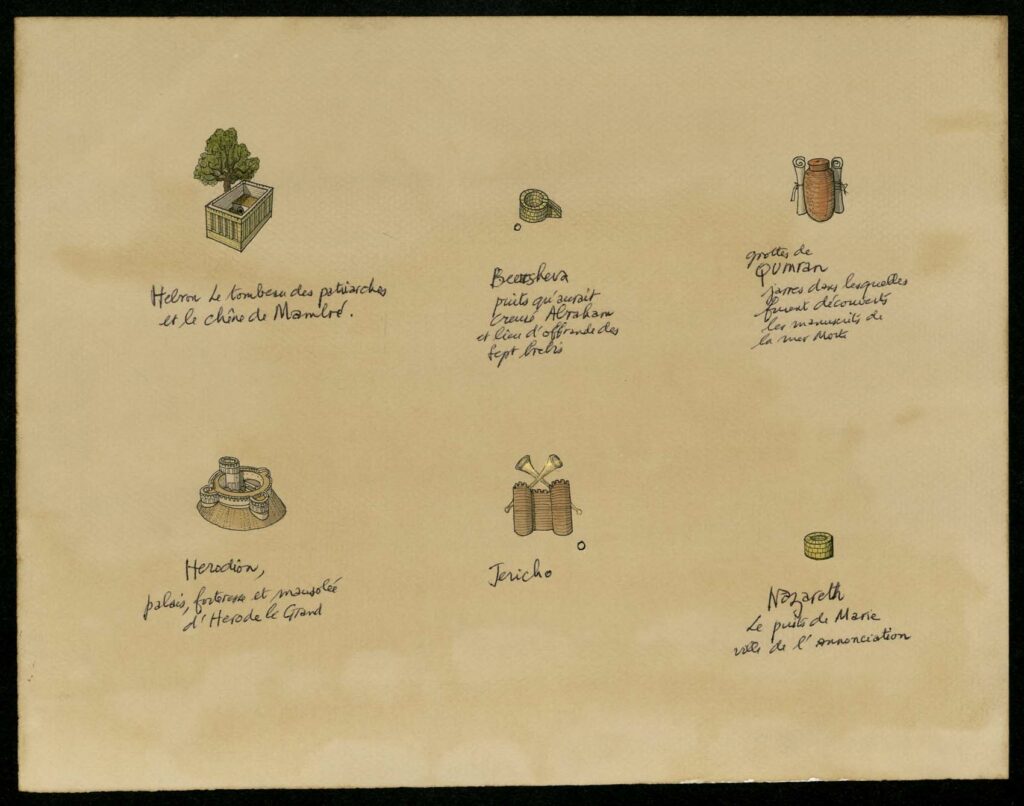 Hebron Le tombeau des patriarches
et le chêne de Mambré.
Beersheva
puits qu'aurait
creusé Abraham
et lieu d'offrande des
sept brebis
grottes de
QUMRAN
jarres dans lesquelles
furent découverts
les manuscrits de
la mer Morte
Herodion,
palais, forteresse et mausolée
d'Herode le Grand
Jericho
Nazareth
Le puits de Marie
ville de l'Annonciation